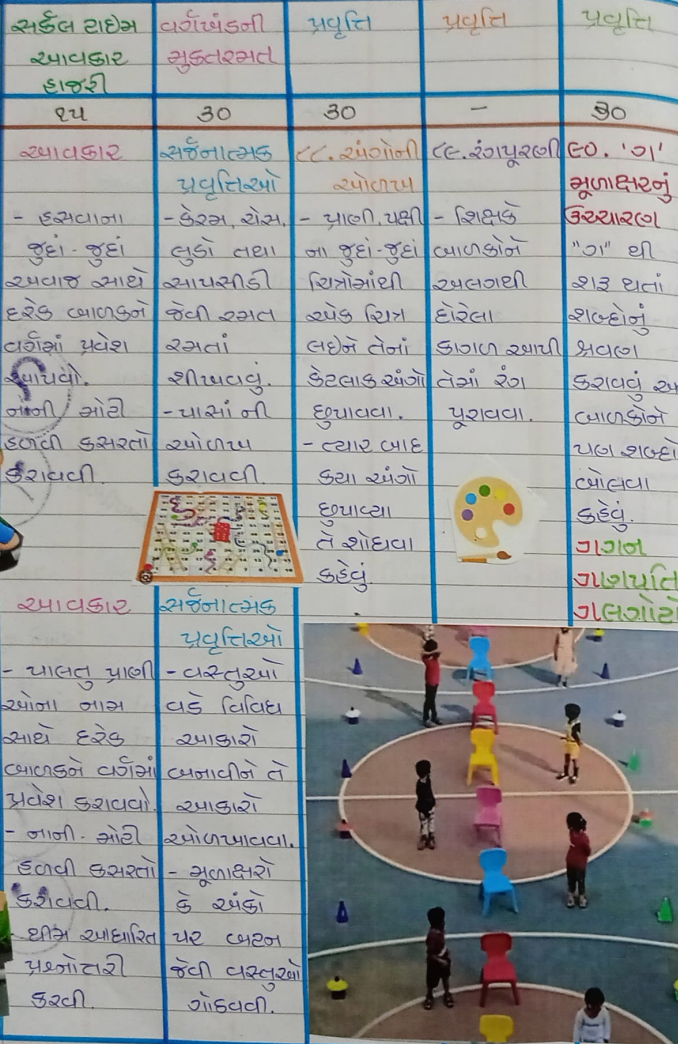 સર્કલ ટાઇમ
આવકાર
હાજરી
વર્ગખંડની
મુકતરમત
પ્રવૃત્તિ
પ્રવૃત્તિ
પ્રવૃત્તિ
૧૫
30
30
-
30
આવકાર
- હસવાના
જુદાં-જુદાં
અવાજ સાથે
દરેક બાળકને
વર્ગમાં પ્રવેશ
આપવો.
નાની મોટી
હળવી કસરતો
કરાવવી.
સર્જનાત્મક
પ્રવૃત્તિઓ
- કેરમ, ચેસ,
લુડો તથા
સાપસીડી
જેવી રમત
રમતાં
શીખવવું.
- પાસાં ની
ઓળખ
કરાવવી.
૮૮. અંગોની
ઓળખ
- પ્રાણી, પક્ષી
ના જુદાં-જુદાં
ચિત્રોમાંથી
એક ચિત્ર
લઇને તેનાં
કેટલાક અંગો
છુપાવવા.
- ત્યાર બાદ
કયા અંગો
છુપાવ્યા
તે શોધવા
કહેવું.
૮૯. રંગપૂરણી
- શિક્ષકે
બાળકોને
અલગથી
દોરેલા
કાગળ આપી
તેમાં રંગ
પૂરાવવા.
૯૦. 'ગ'
મૂળાક્ષરનું
ઉચ્ચારણ
"ગ" થી
શરૂ થતાં
શબ્દોનું
શ્રવણ
કરાવવું અ
બાળકોને
પણ શબ્દો
બોલવા
કહેવું.
ગગન
ગણપતિ
ગલગોટો
આવકાર
- પાલતુ પ્રાણી
ઓના નામ
સાથે દરેક
બાળકને વર્ગમાં
પ્રવેશ કરાવવો.
- નાની-મોટી
હળવી કસરતો
કરાવવી.
- થીમ આધારિત
પ્રશ્નોતરી
કરવી.
સર્જનાત્મક
પ્રવૃત્તિઓ
- વસ્તુઓ
વડે વિવિધ
આકારો
બનાવીને તે
આકારો
ઓળખાવવા.
- મૂળાક્ષરો
કે અંકો
પર બટન
જેવી વસ્તુઓ
ગોઠવવી.